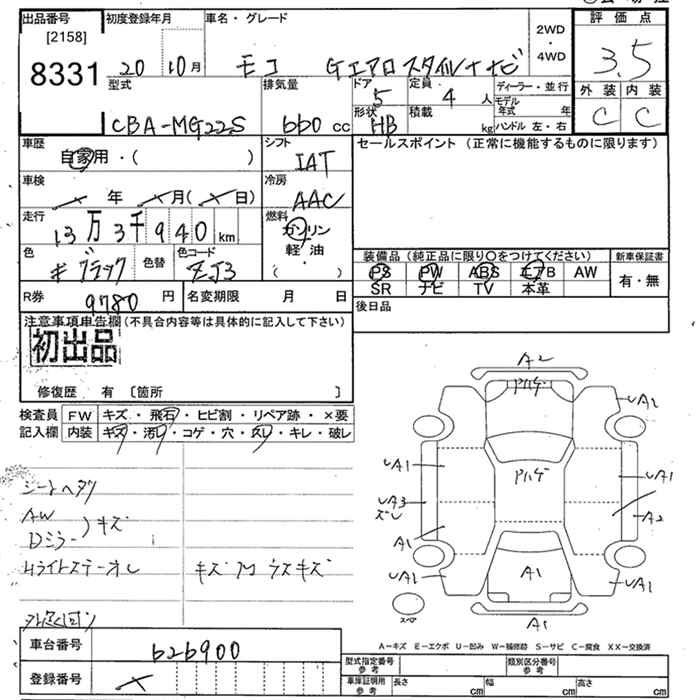 出品番号 初度登録年月 車名・グレード 2WD・4WD 評価点
[2158]
8331 20 10月 モコ Gエアロスタイル 3.5
型式 排気量 ドア 5 定員 4人 ディーラー・並行 外装 内装
CBA-MG22S 660 cc 形状 HB 積載 kg モデル年式 年 C C
ハンドル 左・右
車歴 自家用・( ) シフト IAT セールスポイント (正常に機能するものに限ります)
車検 年 月( 日) 冷房 AAC
走行 13万3千940km 燃料 ガソリン 軽油・( )
色 ブラック 色替 色コード ZJ3
装備品(純正品に限り○をつけてください) 新車保証書
PS PW ABS エアB AW 有・無
SR ナビ TV 本革
R券 9780円 名変期限 月 日 後日品
注意事項申告欄(不具合内容等は具体的に記入して下さい)
初出品
修復歴 有 〔箇所 〕
検査員 FW キズ・飛石・ヒビ割・リペア跡・×要
記入欄 内装 キズ・汚レ・コゲ・穴・スレ・キレ・破レ
A2
Pハゲ
UA1
UA1 Pハゲ UA1
UA3 ズレ A2
A1
UA1 A1 UA1
スペア
A1
AW
Dミラー )キズ
キズ 凹 ウスキズ
A－キズ E－エクボ U－凹み W－補修跡 S－サビ C－腐食 XX－交換済
車台番号 626900
型式指定番号 参考 類別区分番号 参考
登録番号
車庫証明用 参考 長さ cm 幅 cm 高さ cm